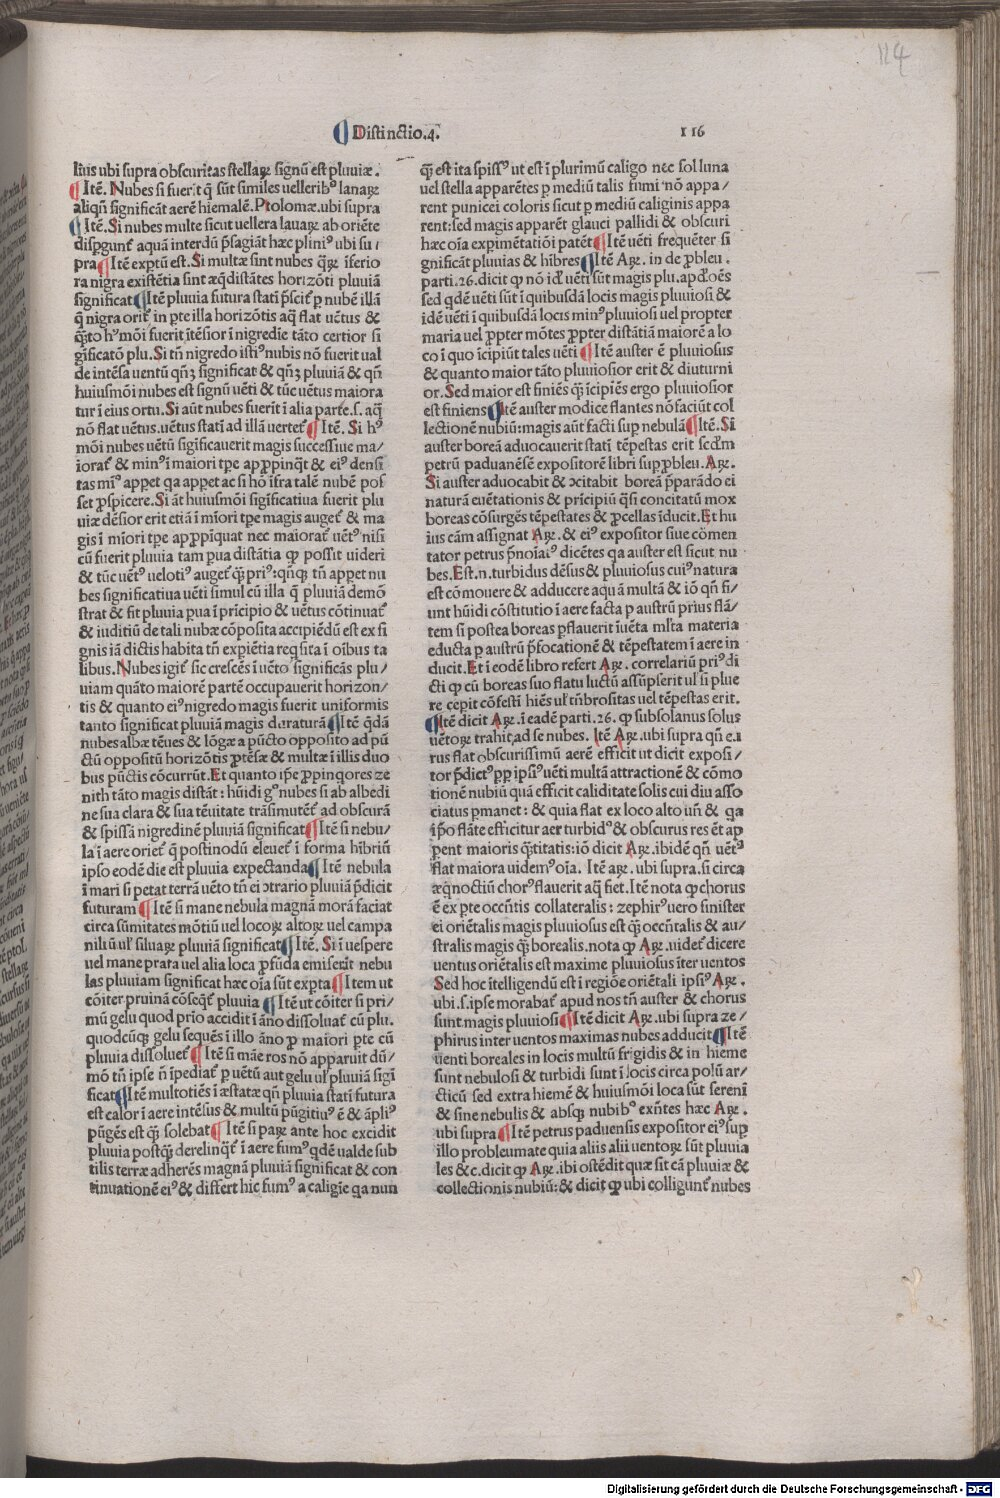 114
¶ Distinctio.4.
116
lius ubi supra obscuritas stellaꝝ signũ est pluuiæ.
¶ Itẽ. Nubes si fuerit q̃ sũt similes uelleribꝰ lanaꝝ
aliqñ significãt aerẽ hiemalẽ. Ptolomæ. ubi supra
¶ Itẽ. Si nubes multe sicut uellera lauaꝝ ab oriẽte
dispgunt̃ aquã interdũ p̃sagiãt hæc pliniꝰ ubi su/
pra ¶ Itẽ exptũ est. Si multæ sint nubes q̃ꝝ ĩferio
ra nigra existẽtia sint æq̃distãtes horizõti pluuiã
significat ¶ Itẽ pluuia futura stati p̃scit̃ p nubẽ illã
q̃ nigra orit̃ in pte illa horizõtis aq̃ flat uẽtus &
q̃to hꝰmõi fuerit ĩtẽsior ĩ nigredie tãto certior si
gĩficatõ plu. Si tñ nigredo istiꝰ nubis nõ fuerit ual
de intẽsa uentũ qñꝫ significat & qñꝫ pluuiã & qñ
huiusmõi nubes est signũ uẽti & tũc uẽtus maiora
tur ĩ eius ortu. Si aũt nubes fuerit ĩ alia parte. s. aq̃
nõ flat uẽtus. uẽtus stati ad illã uertet̃ ¶ Itẽ. Si hꝰ
mõi nubes uẽtũ sigificauerit magis successiue ma/
iorat̃ & minꝰ ĩ maiori tpe appropinq̃t & eiꝰ densi
tas mĩꝰ appet qa appet ac si hõ ĩfra talẽ nubẽ pos
set pspicere. Si ãt huiusmõi significatiua fuerit plu
uiæ dẽsior erit etiã ĩ mĩori tpe magis auget̃ & ma
gis ĩ mĩori tpe appropĩquat nec maiorat̃ uẽtꝰ nisi
cũ fuerit pluuia tam pua distãtia qp possit uideri
& tũc uẽtꝰ uelotiꝰ auget̃ q̃ priꝰ: qñq; tñ appet nu
bes significatiua uẽti simul cũ illa q̃ pluuiã demõ
strat & fit pluuia pua ĩ prĩcipio & uẽtus cõtinuat̃
& iuditiũ de tali nubæ cõposita accipiẽdũ est ex si
gnis iã dictis habita tñ expiẽtia req̃sita ĩ oĩbus ta
libus. Nubes igit̃ sic crescẽs ĩ uẽto significãs plu/
uiam quãto maiorẽ partẽ occupauerit horizon/
tis & quanto eiꝰ nigredo magis fuerit uniformis
tanto significat pluuiã magis duraturã ¶ Itẽ q̃dã
nubes albæ tẽues & lõgæ a pũcto opposito ad pũ
ctũ oppositũ horizõtis protẽsæ & multæ ĩ illis duo
bus pũctis cõcurrũt. Et quanto ipse ppinqores ze
nith tãto magis distãt: hũidi gᵒ nubes si ab albedi
ne sua clara & sua tẽuitate trãsimutẽt̃ ad obscurã
& spissã nigredinẽ pluuiã significat ¶ Itẽ si nebu/
la ĩ aere oriet̃ q̃ postinodũ eleuet̃ ĩ forma hĩbriũ
ipso eodẽ die est pluuia expectanda ¶ Itẽ nebula
ĩ mari si petat terrã uẽto tñ ei ↄtrario pluuiã p̃dicit
futuram ¶ Itẽ si mane nebula magnã morã faciat
circa sũmitates mõtiũ uel locoꝝ altoꝝ uel campa
niliũ ul̃ siluaꝝ pluuiã significat ¶ Itẽ. Si ĩ uespere
uel mane prata uel alia loca pfũda emiserĩt nebu
las pluuiam significat hæc oĩa sũt expta ¶ Item ut
cõiter pruinã cõseq̃t̃ pluuia ¶ Itẽ ut cõiter si pri/
mũ gelu quod prio accidit ĩ ãno dissoluat̃ cũ plu.
quodcũq; gelu sequẽs ĩ illo ãno p maiori pte cũ
pluuia dissoluet̃ ¶ Itẽ si mãe ros nõ apparuit dũ/
mõ tñ ipse ñ ĩpediat̃ p uẽtũ aut gelu ul̃ pluuiã sigĩ
ficat ¶ Itẽ multotiẽs ĩ æstatæ qñ pluuia stati futura
est calor ĩ aere intẽsus & multũ pũgitiuꝰ ẽ & ãpliꝰ
pũgẽs est q̃ solebat ¶ Itẽ si paꝝ ante hoc excidit
pluuia postq̃ derelinq̃t̃ ĩ aere fumꝰ q̃dẽ ualde sub
tilis terræ adherẽs magnã pluuiã significat & con
tinuationẽ eiꝰ & differt hic fumꝰ a caligĩe qa nun
q̃ est ita spissꝰ ut est ĩ plurimũ caligo nec sol luna
uel stella apparẽtes p mediũ talis fumi nõ appa/
rent punicei coloris sicut p mediũ caliginis appa
rent: sed magis apparẽt glauci pallidi & obscuri
hæc oĩa expimẽtatiõi patẽt ¶ Itẽ uẽti frequẽter si
gnificãt pluuias & hĩbres ¶ Itẽ Aꝝ. in de pbleu.
parti. 26. dicit qp nõ id̃ uẽti sũt magis plu. apd̃ oẽs
sed q̃dẽ uẽti sũt ĩ quibusdã locis magis pluuiosi &
idẽ uẽti ĩ quibusdã locis minꝰ pluuiosi uel propter
maria uel ppter mõtes ppter distãtiã maiorẽ a lo
co ĩ quo ĩcipiũt tales uẽti ¶ Itẽ auster ẽ pluuiosus
& quanto maior tãto pluuiosior erit & diuturni
or. Sed maior est finiẽs q̃ ĩcipiẽs ergo pluuiosior
est finiens ¶ Itẽ auster modice flantes nõ faciũt col
lectionẽ nubiũ: magis aũt facti sup nebulã ¶ Itẽ. Si
auster boreã aduocauerit stati tẽpestas erit scd̃m
petrũ paduanẽsẽ expositorẽ libri sup pbleu. Aꝝ.
Si auster aduocabit & ↄcitabit boreã p̃parãdo ei
naturã euẽtationis & prĩcipiũ q̃si concitatũ mox
boreas cõsurgẽs tẽpestates & pcellas ĩducit. Et hu
ius cãm assignat Aꝝ. & eiꝰ expositor siue cõmen
tator petrus p̃noĩatꝰ dicẽtes qa auster est sicut nu
bes. Est. n. turbidus dẽsus & pluuiosus cuiꝰ natura
est cõmouere & adducere aquã multã & iõ qñ fi/
unt hũidi cõstitutio ĩ aere facta p austrũ prius flã/
tem si postea boreas pflauerit ĩuẽta ml̃ta materia
educta p austrũ p̃focationẽ & tẽpestatem ĩ aere in
ducit. Et ĩ eodẽ libro refert Aꝝ. correlariũ priꝰ di
cti qp cũ boreas suo flatu luctũ assũpserit ul̃ si plue
re cepit cõfestĩ hiẽs ul̃ tñbrositas uel tẽpestas erit.
¶ Itẽ dicit Aꝝ. ĩ eadẽ parti. 26. qp subsolanus solus
uẽtoꝝ trahit ad se nubes. Itẽ Aꝝ. ubi supra qñ e.i
rus flat obscurissimũ aerẽ efficit ut dicit exposi/
tor p̃dictꝰ pp ipsiꝰ uẽti multã attractionẽ & cõmo
tionẽ nubiũ quã efficit caliditate solis cui diu asso
ciatus pmanet: & quia flat ex loco alto uñ & qa
ip̃o flãte efficitur aer turbidꝰ & obscurus res ẽt ap
pent maioris q̃titatis: iõ dicit Aꝝ. ibidẽ qñ uẽtꝰ
flat maiora uidemꝰ oĩa. Itẽ aꝝ. ubi supra. si circa
æq̃noctiũ chorꝰ flauerit aq̃ fiet. Itẽ nota qp chorus
ẽ ex pte occñtis collateralis: zephirꝰ uero sinister
ei oriẽtalis magis pluuiosus est q̃ occñtalis & au/
stralis magis q̃ borealis. nota qp Aꝝ. uidet̃ dicere
uentus oriẽtalis est maxime pluuiosus ĩter uentos
Sed hoc ĩtelligendũ est ĩ regiõe oriẽtali ipsiꝰ Aꝝ.
ubi. s. ipse morabat̃ apud nos tñ auster & chorus
sunt magis pluuiosi ¶ Itẽ dicit Aꝝ. ubi supra ze/
phirus inter uentos maximas nubes adducit ¶ Itẽ
uenti boreales in locis multũ frigidis & in hieme
sunt nebulosi & turbidi sunt ĩ locis circa polũ ar/
cticũ sed extra hiemẽ & huiusmõi loca sũt sereni
& sine nebulis & absq; nubibꝰ exñtes hæc Aꝝ.
ubi supra ¶ Itẽ petrus paduensis expositor eiꝰ sup
illo probleumate quia aliis alii uentoꝝ sũt pluuia
les & c. dicit qp Aꝝ. ibi ostẽdit quæ sit cã pluuiæ &
collectionis nubiũ: & dicit qp ubi colligunt̃ nubes
Digitalisierung gefördert durch die Deutsche Forschungsgemeinschaft - DFG